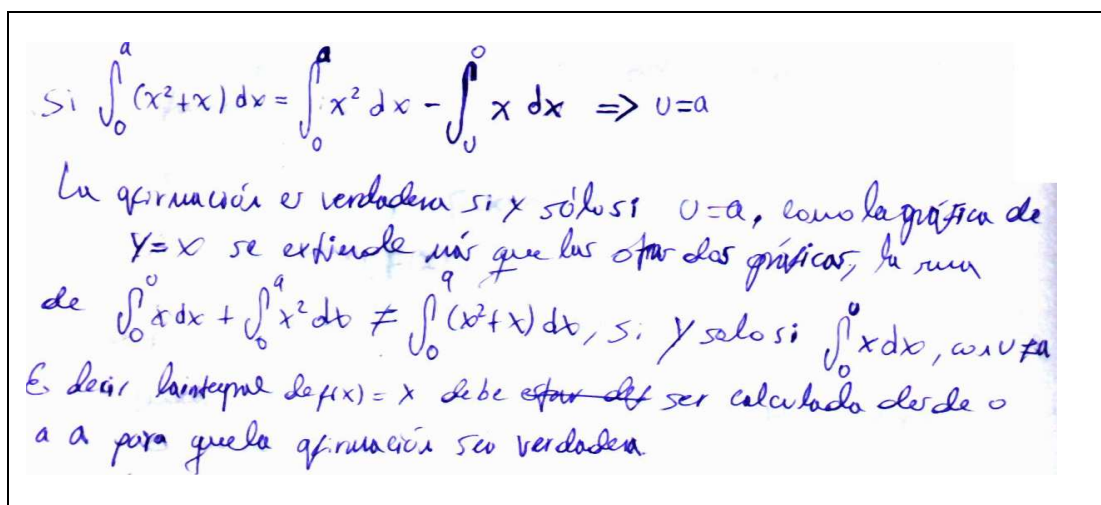 Si ∫₀ᵃ (x²+x) dx = ∫₀ᵃ x² dx - ∫ᵤ⁰ x dx => u=a
La afirmación es verdadera si y sólo si u=a, como la gráfica de
y=x se extiende más que las otras dos gráficas, la suma
de ∫₀ᵘ x dx + ∫₀ᵃ x² dx ≠ ∫₀ᵃ (x²+x) dx, si y solo si ∫₀ᵘ x dx, con u≠a
Es decir la integral de f(x) = x debe estar def ser calculada desde 0
a a para que la afirmación sea verdadera.